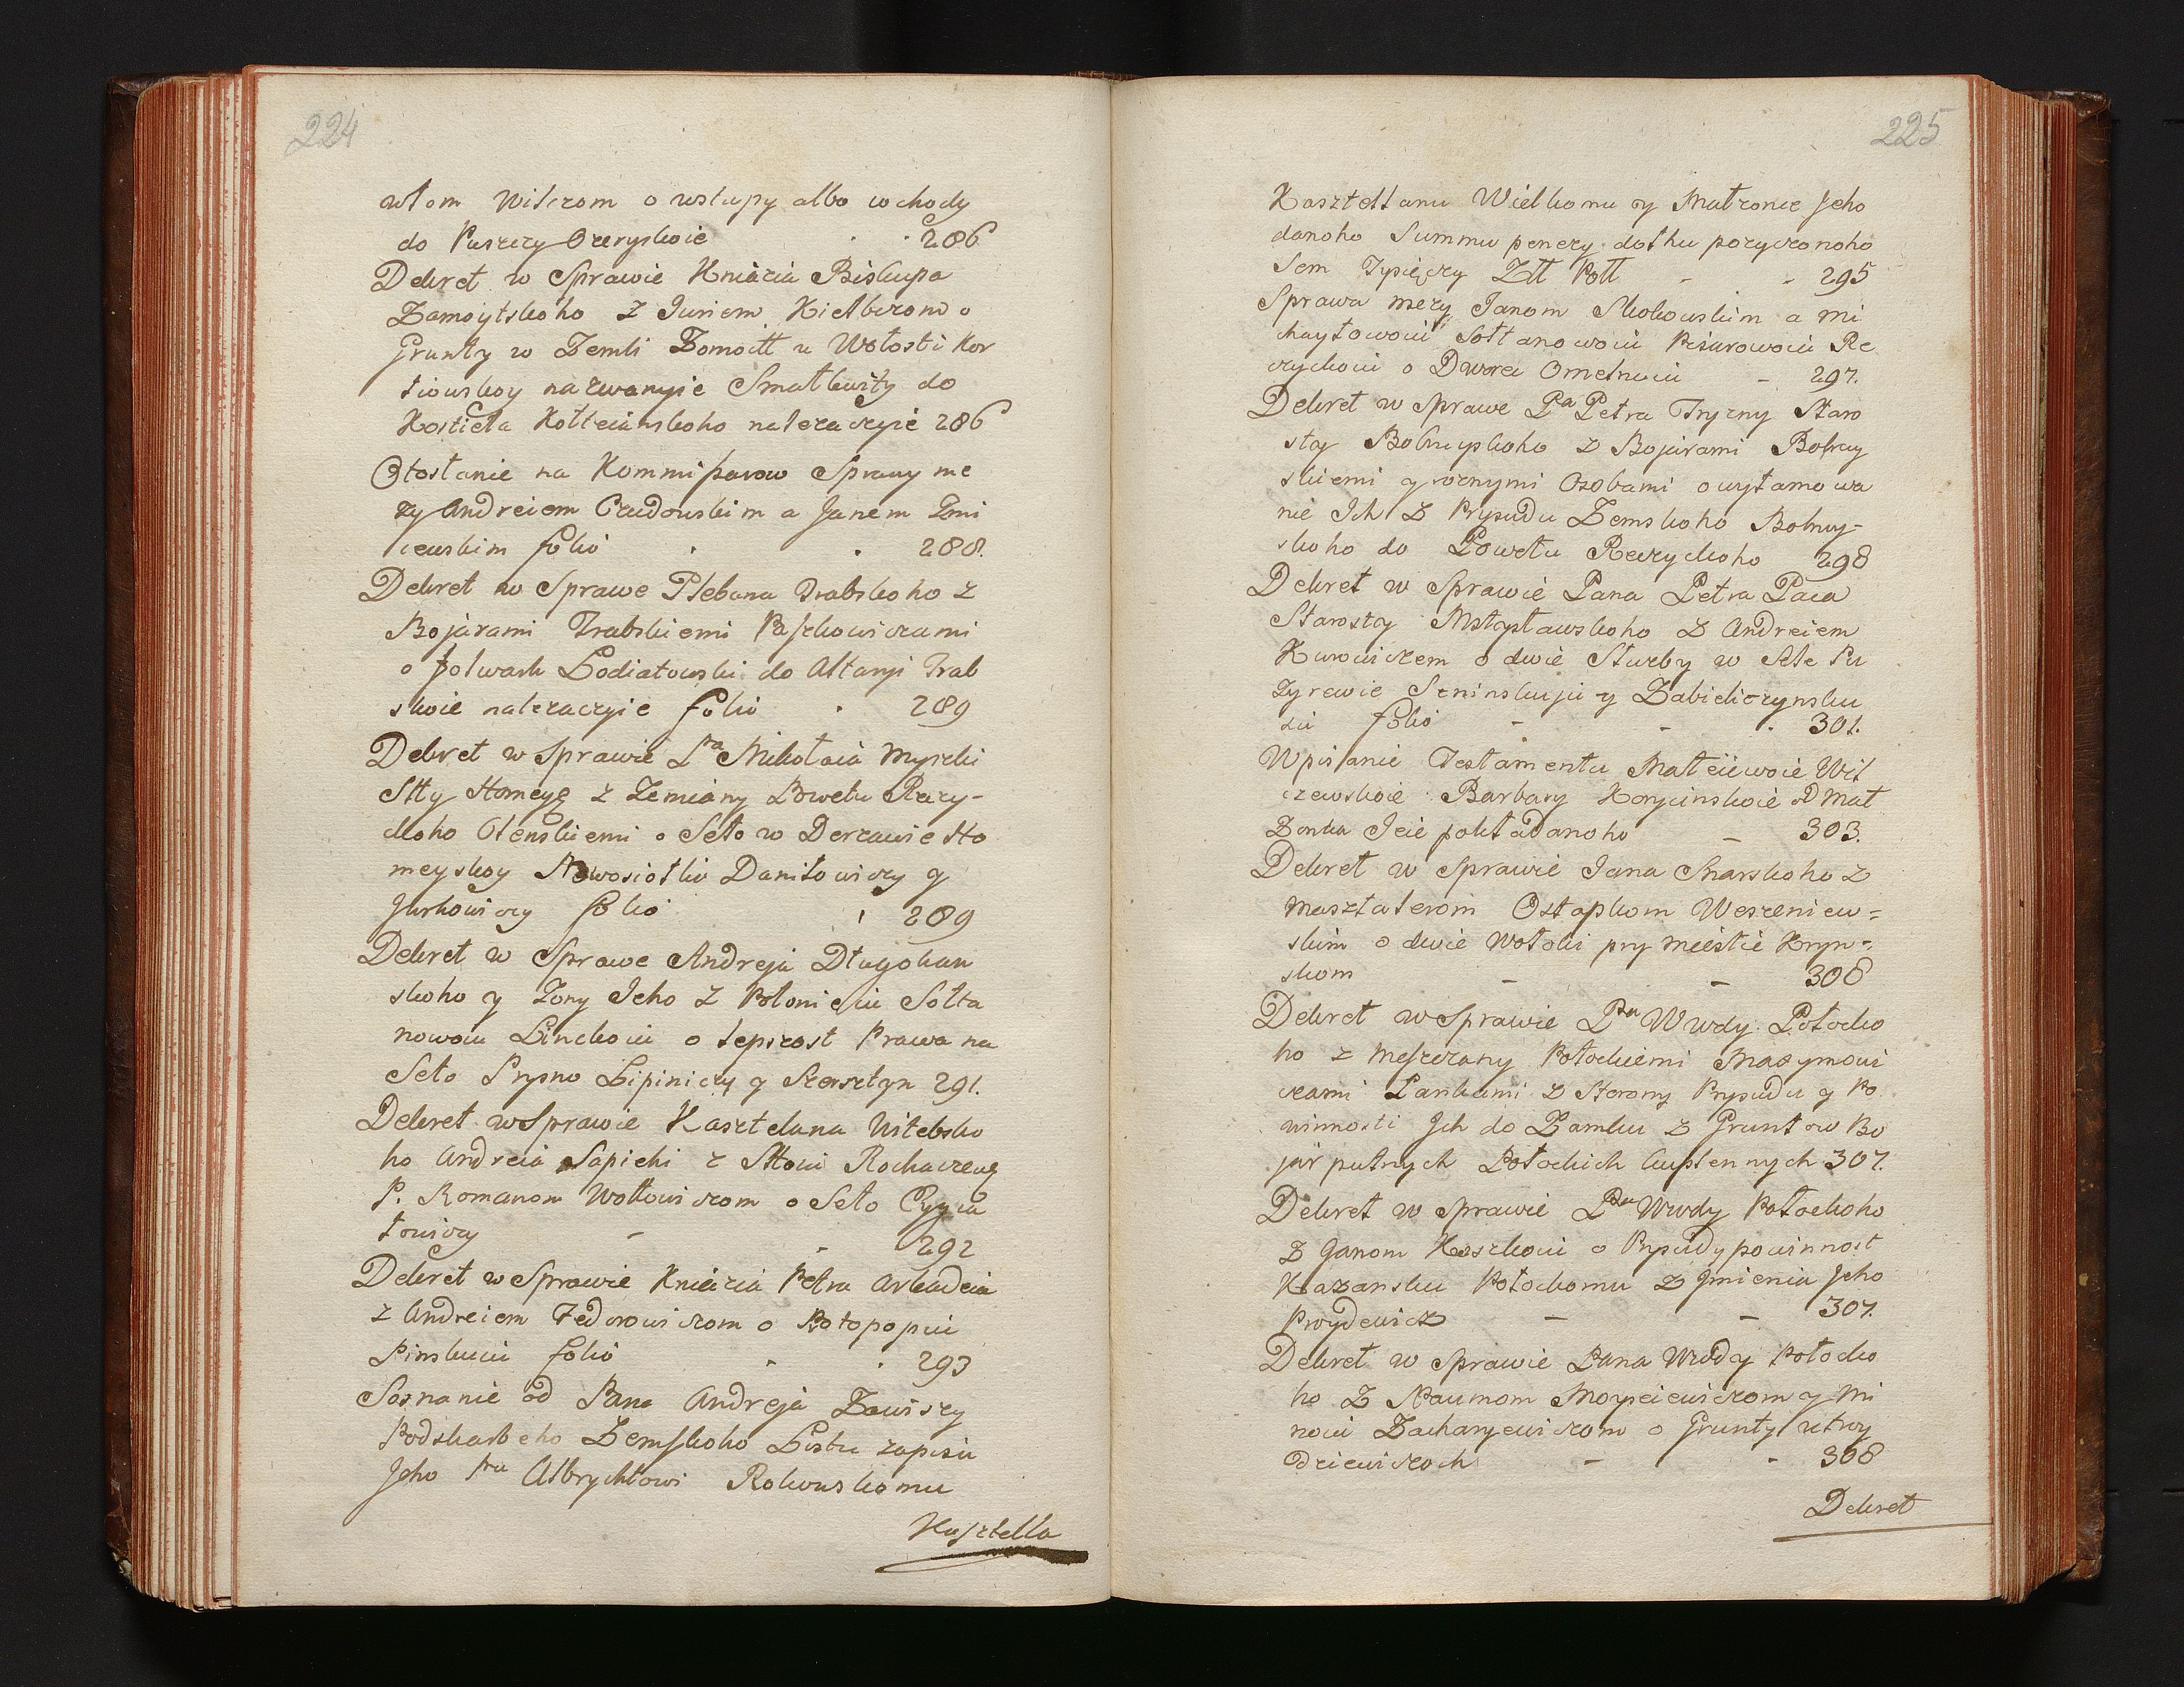 224
włom Wilczom o wstupy albo wchody
do Puszczy Ozeryskoie 286
Dekret w Sprawie Kniazia Biskupa
Żamoytskoho z Juriem Kielbszom o
Grunty w Żemli Żomoitt u Wołosti Kor
tiowskoy nazwanyie Smałkwity do
Kostieła Kołteianskoho nalezaczyie 286
Otosłanie na Kommissarow Sprawy me
zy Andreiem Czudowskim a Janem Zmi
iewskim folio 288.
Dekret w Sprawe Plebana Trabskoho z
Bojarami Trabskiemi Paszkowiczami
o folwark Lodiatowski do Altaryi Trab
skoie nalezaczyie folio 289
Dekret w Sprawie Pna Mikołaia Myszki
Stty Homeyę z Zemiany Powetu Reczy-
ckoho Olenskiemi o Seło w Derzawie Ho
meyskoy Nowosiołki Daniłowiczy y
Jurkowiczy folio 289
Dekret w Sprawe Andreja Długokan
skoho y Zony Jeho z Połonieju Sołta
nowoiu Linckoiu o lepszost Prawa na
Seło Prysno Lipiniczy y Szersztyn 291.
Dekret w Sprawie Kasztelana Witebsko
ho Andreia Sapiehi z Sttoiu Rochaczewę
P. Romanom Wołłowiczom o Seło Cyga
łowiczy 292
Dekret w Sprawie Kniazia Petra Arkadeia
z Andreiem Fedorowiczom o Protopopiu
Pinskuiu folio 293
Soznanie od Pana Andreja Zawiszy
Podskarbeho Zemskoho Listu zapisu
Jeho Pnu Albrychtowi Rokowskomu
Kasztella
225
Kasztellanu Wielkomu y Małzonce Jeho
danoho Summu penezy dołhu pozyczonoho
Sem Tysięczy Złł Poll 295
Sprawa mezy Janom Skokowskim a Mi
chayłowoiu Sołtanowoiu Pisarowoiu Re
czyckoiu o Dworec Omelnuiu 297.
Dekret w Sprawe Pna Petra Tryzny Staro
sty Bobruyskoho z Bojarami Bobruy
skiemi y roznymi Osobami o wyłamowa
nie Ich z Prysudu Zemskoho Bobruy-
skoho do Powetu Reczyckoho 298
Dekret w Sprawie Pana Petra Paca
Starosty Mstysławskoho z Andreiem
Kurowiczem o dwie Służby w Sele Pu
zyrewie Seninskuju y Zabieliczynsku
iu folio 301.
Wpisanie Testamentu Mateiewoie Wil
czewskoie Barbary Korycinskoie od Mał
Żonka Jeie pokładanoho 303.
Dekret w Sprawie Jana Snarskoho z
Masztalerom Ostapkom Weszeniew=
skim o dwie Wołoki pry Miestie Kryn=
skom 306
Dekret w Sprawie Pna Wwdy Połocko
ho z Meszczany Połockiemi Maxymowi
czami Pankami z Storony Prysudu y Po
winnosti Ich do Zamku z Gruntow Bo
jar putnych Połockich Cuplennych 307.
Dekret w Sprawie Pna Wwdy Połockoho
z Janom Koszkoiu o Prysudy powinnost
Kazansku Połockomu z Jmienia Jeho
Proydewicz 307.
Dekret w Sprawie Pana Wwdy Połocko
ho z Naumom Moyseiewiczom y Mi
noiu Zacharyewiczom o Grunty u Two
dziewiczoch 308
Dekret